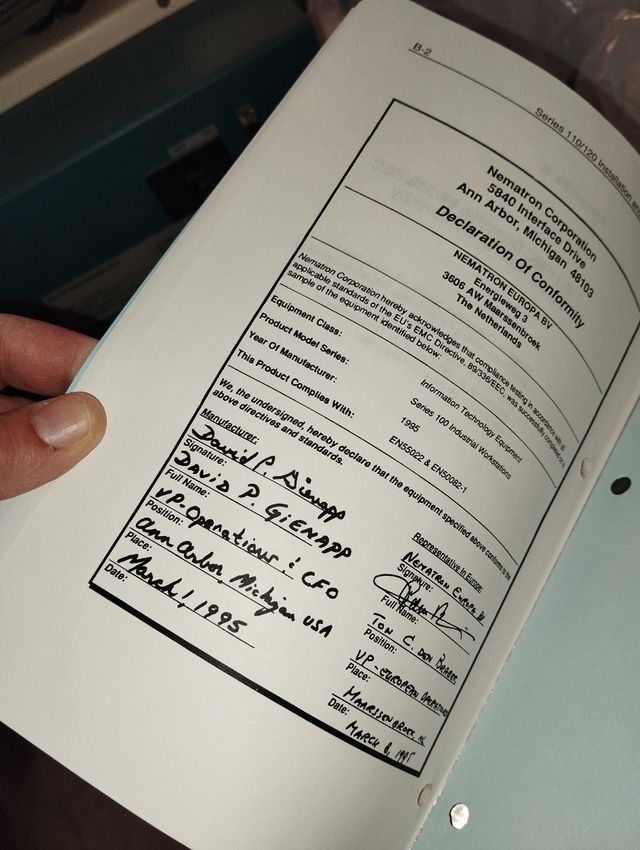 B-2
Series 110/120 Installation and
Nematron Corporation
5840 Interface Drive
Ann Arbor, Michigan 48103
Declaration Of Conformity
NEMATRON EUROPA BV
Energieweg 3
3606 AW Maarssenbroek
The Netherlands
Nematron Corporation hereby acknowledges that compliance testing in accordance with
applicable standards of the EU's EMC Directive, 89/336/EEC, was successfully completed on a
sample of the equipment identified below:
Equipment Class: Information Technology Equipment
Product Model Series: Series 100 Industrial Workstations
Year Of Manufacturer: 1995
This Product Complies With: EN55022 & EN50082-1
We, the undersigned, hereby declare that the equipment specified above conforms to the
above directives and standards.
Manufacturer:
David P. Gienapp
Signature:
DAVID P. GIENAPP
Full Name:
VP-Operations & CFO
Position:
Ann Arbor, Michigan USA
Place:
March 1, 1995
Date:
Representative In Europe:
NEMATRON EUROPA BV
Signature:
Full Name:
TON C. DEN
Position:
VP-EUROPEAN OPERATIONS
Place:
MAARSSENBROEK, NL
Date:
MARCH 8, 1995